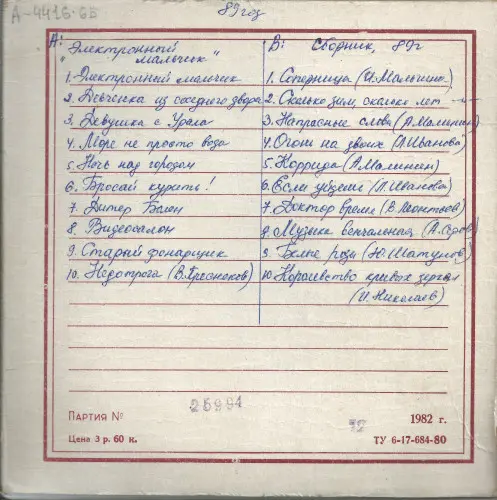 А-4416-6Б
89 год
А:
"Электронный мальчик"
1. Электронный мальчик
2. Девченка из соседнего двора
3. Девушка с Урала
4. Море не просто вода
5. Ночь над городом
6. Бросай курить!
7. ДитерБолен
8. Видеосалон
9. Старый фонарщик
10. Недотрога (В. Пресняков)
В: Сборник, 89г
1. Соперница (И. Мальгина)
2. Сколько зим, сколько лет —"—
3. Напрасные слова (А. Малинин)
4. Огонь на двоих (Л. Иванова)
5. Коррида (А. Малинин)
6. Если уйдешь (Л. Иванова)
7. Доктор время (В. Леонтьев)
8. Музыка венчальная (А. Серов)
9. Белые розы (Ю. Шатунов)
10. Королевство кривых зеркал
(И. Николаев)
Партия №
25994
12
1982 г.
Цена 3 р. 60 к.
ТУ 6-17-684-80